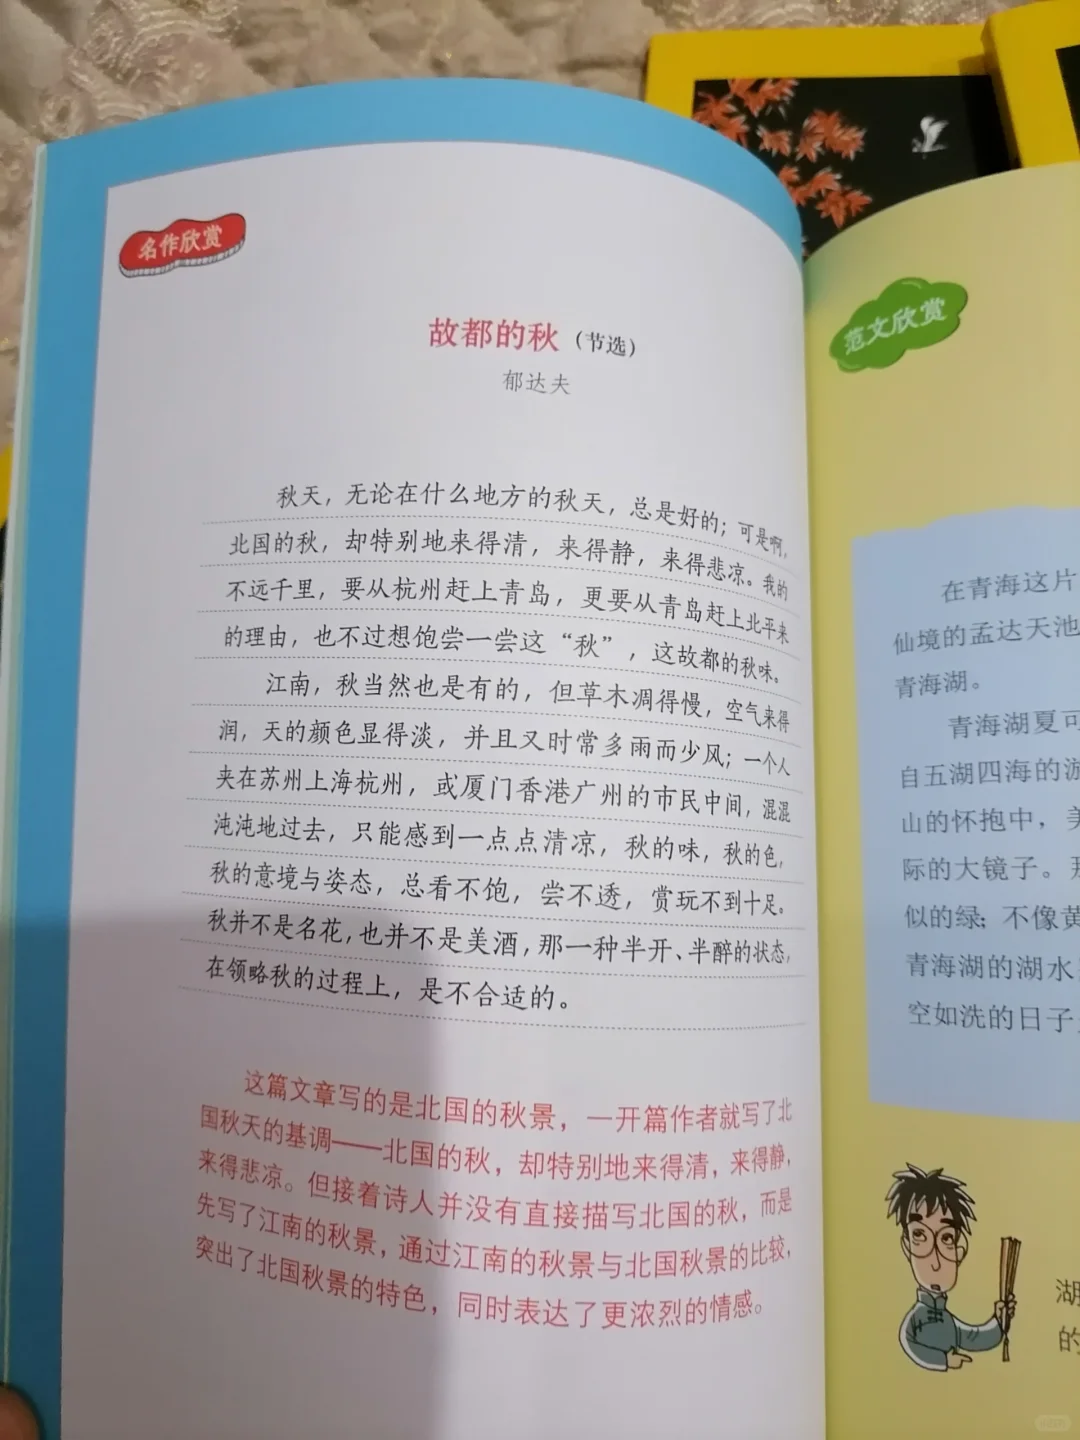 名作欣赏
故都的秋（节选）
郁达夫
秋天，无论在什么地方的秋天，总是好的；可是啊，
北国的秋，却特别地来得清，来得静，来得悲凉。我的
不远千里，要从杭州赶上青岛，更要从青岛赶上北平来
的理由，也不过想饱尝一尝这“秋”，这故都的秋味。
江南，秋当然也是有的，但草木凋得慢，空气来得
润，天的颜色显得淡，并且又时常多雨而少风；一个人
夹在苏州上海杭州，或厦门香港广州的市民中间，混混
沌沌地过去，只能感到一点点清凉，秋的味，秋的色，
秋的意境与姿态，总看不饱，尝不透，赏玩不到十足。
秋并不是名花，也并不是美酒，那一种半开、半醉的状态，
在领略秋的过程上，是不合适的。
这篇文章写的是北国的秋景，一开篇作者就写了北
国秋天的基调——北国的秋，却特别地来得清，来得静，
来得悲凉。但接着诗人并没有直接描写北国的秋，而是
先写了江南的秋景，通过江南的秋景与北国秋景的比较，
突出了北国秋景的特色，同时表达了更浓烈的情感。
范文欣赏
在青海这片
仙境的孟达天池
青海湖。
青海湖夏可
自五湖四海的游
山的怀抱中，美
际的大镜子。那
似的绿；不像黄
青海湖的湖水
空如洗的日子，
湖
的